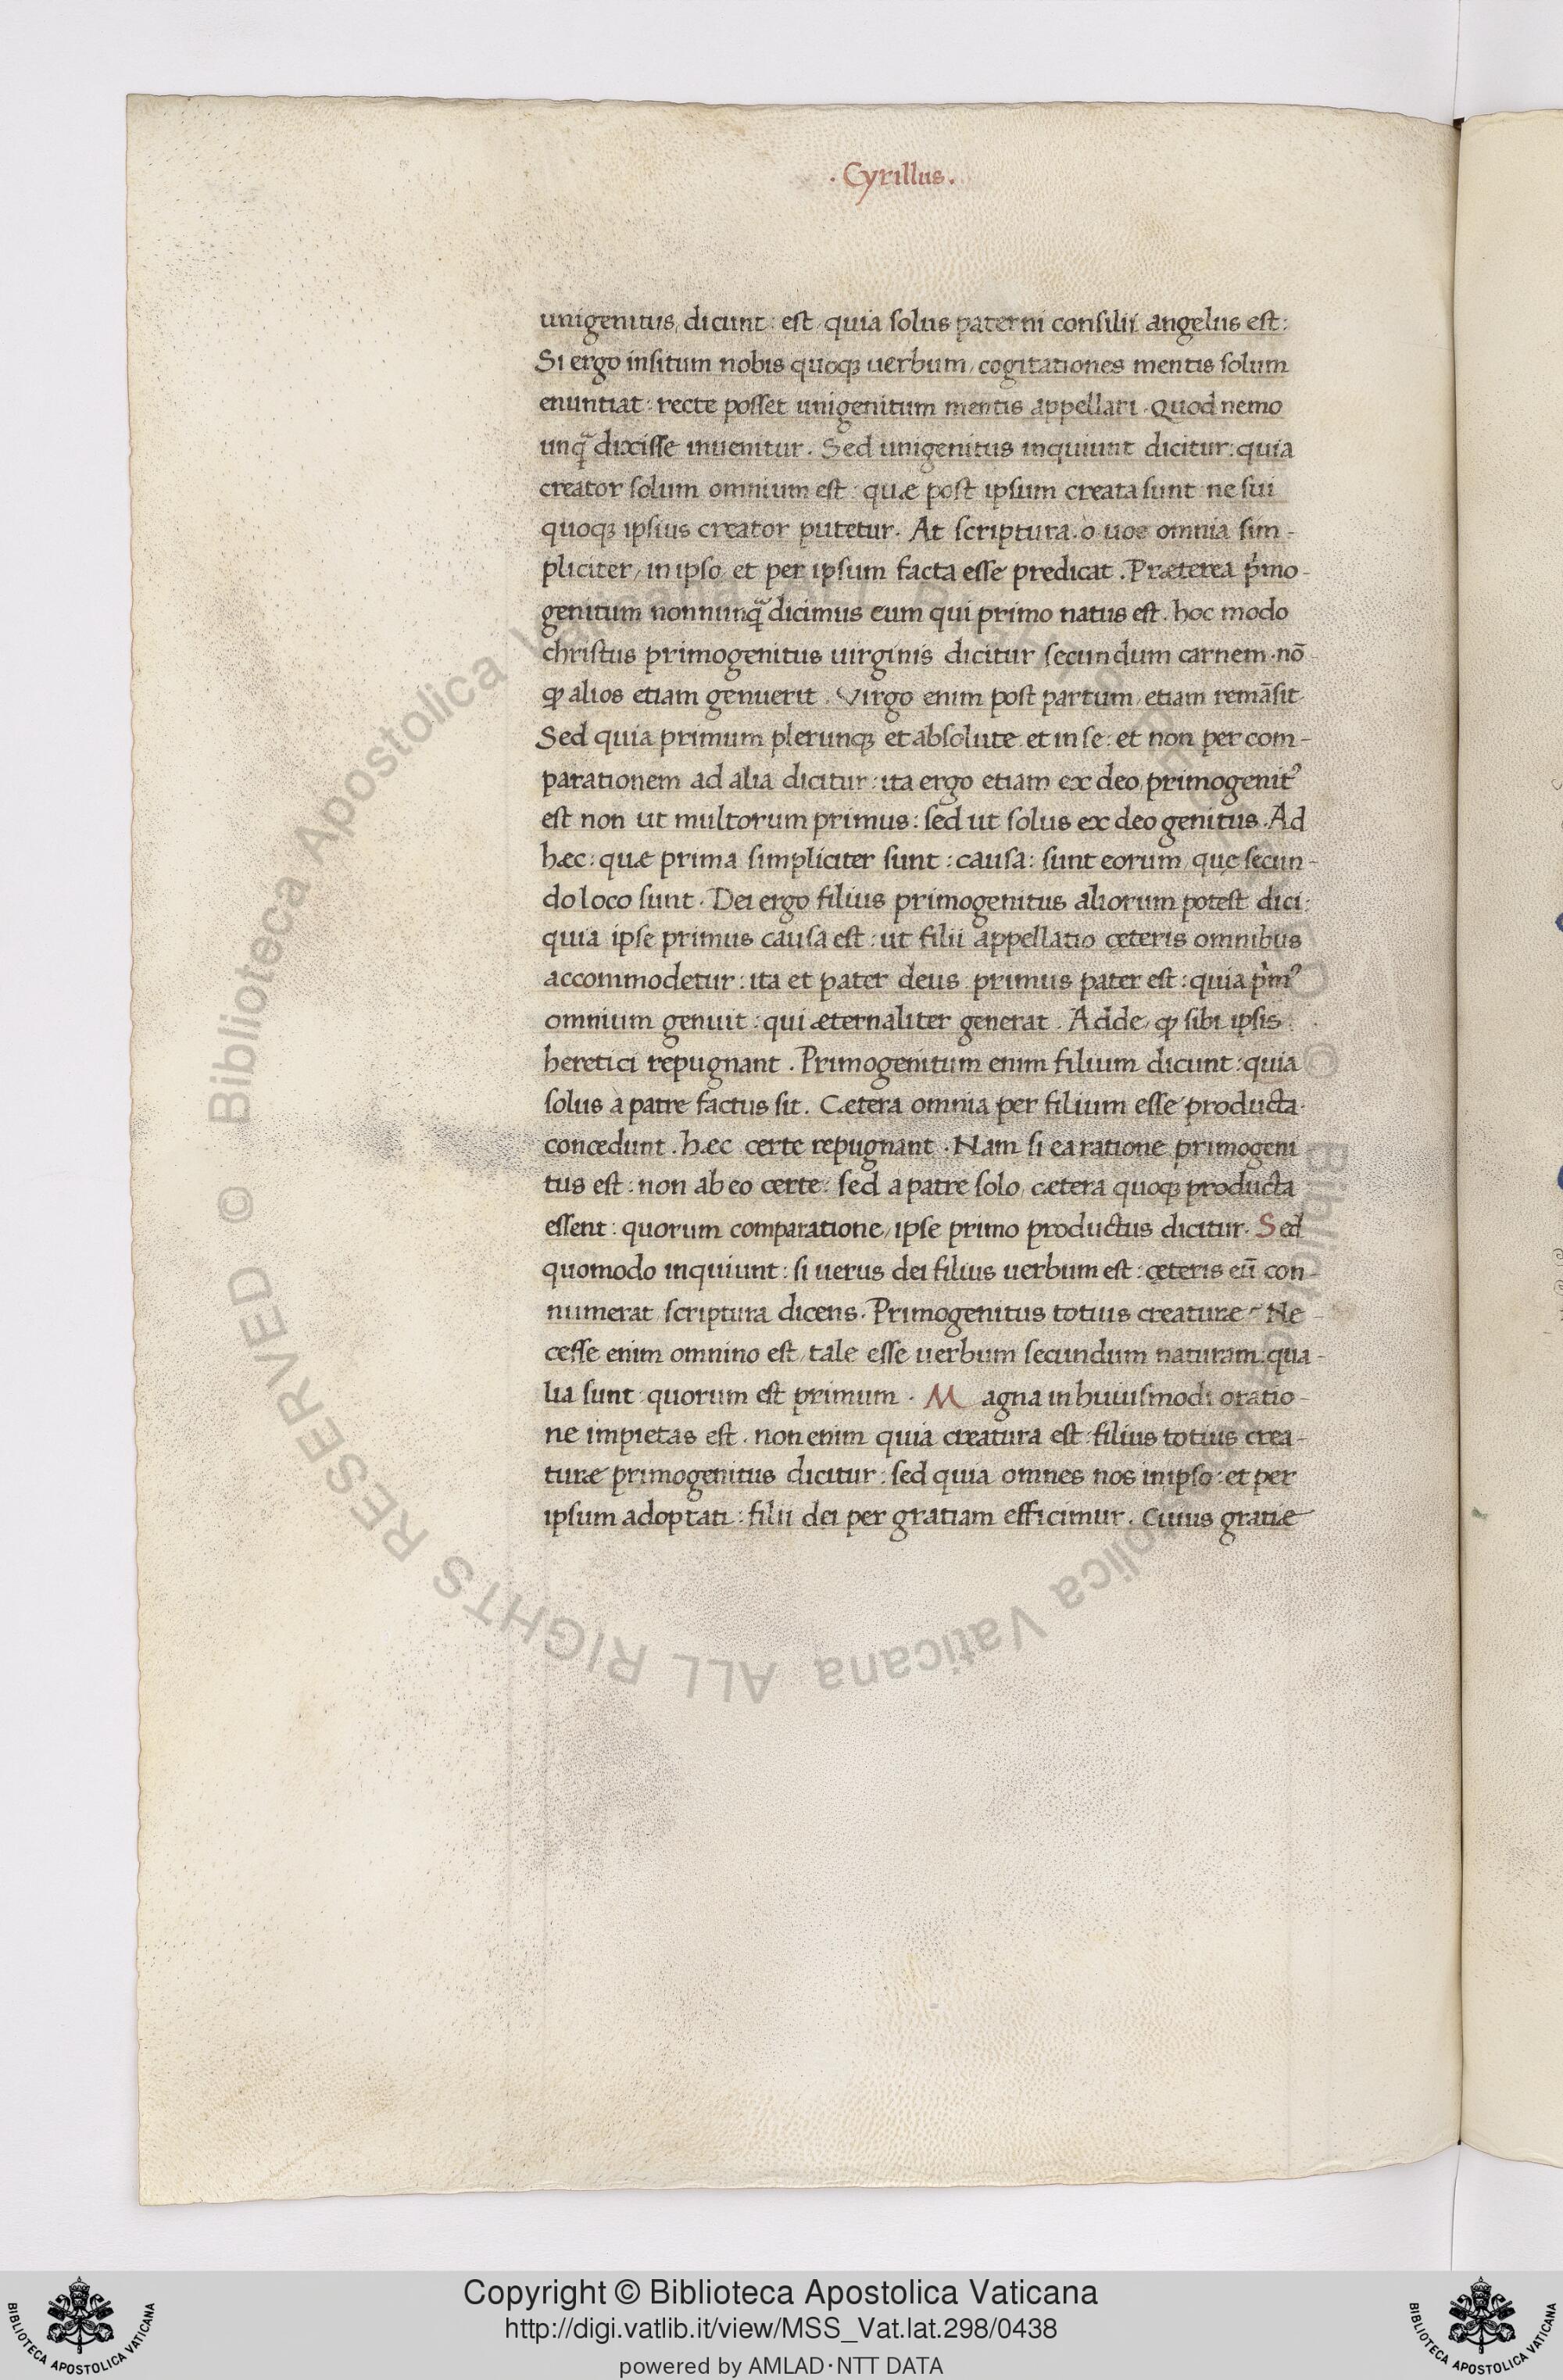 · Cyrillus ·
unigenitus, dicunt: est, quia solus paterni consilii angelus est:
Si ergo insitum nobis quoqꝫ uerbum, cogitationes mentis solum
enuntiat: recte posset unigenitum mentis appellari. Quod nemo
unqᷓ dixisse inuenitur. Sed unigenitus inquiunt dicitur: quia
creator solum omnium est: quæ post ipsum creata sunt: ne sui
quoqꝫ ipsius creator putetur. At scriptura. o uoe omnia sim-
pliciter, in ipso, et per ipsum facta esse predicat. Præterea pͥmo-
genitum nonnunqᷓ dicimus eum qui primo natus est. hoc modo
christus primogenitus uirginis dicitur secundum carnem. nō
ꝙ alios etiam genuerit. Virgo enim post partum, etiam remāsit
Sed quia primum plerunqꝫ et absolute et in se: et non per com-
parationem ad alia dicitur: ita ergo etiam ex deo primogenitꝰ
est non ut multorum primus: sed ut solus ex deo genitus. Ad
hæc: quæ prima simpliciter sunt: causa: sunt eorum, quę secun-
do loco sunt. Dei ergo filius primogenitus aliorum potest dici:
quia ipse primus causa est: ut filii appellatio cęteris omnibus
accommodetur: ita et pater deus primus pater est: quia pͥmꝰ
omnium genuit: qui æternaliter generat. Adde, ꝙ sibi ipsis
heretici repugnant. Primogenitum enim filium dicunt: quia
solus a patre factus sit. Cætera omnia per filium esse producta
concedunt. hæc certe repugnant. Nam si ea ratione primogeni
tus est: non ab eo certe: sed a patre solo, cætera quoqꝫ producta
essent: quorum comparatione, ipse primo productus dicitur. Sed
quomodo inquiunt: si uerus dei filius uerbum est: cęteris eū con-
numerat scriptura dicens. Primogenitus totius creaturæ? Ne-
cesse enim omnino est, tale esse uerbum secundum naturam: qua-
lia sunt: quorum est primum. Magna in huiusmodi oratio-
ne impietas est. non enim quia creatura est: filius totius crea-
turæ primogenitus dicitur: sed quia omnes nos in ipso: et per
ipsum adoptati: filii dei per gratiam efficimur. Cuius gratiæ
© Biblioteca Apostolica Vaticana ALL RIGHTS RESERVED
© Biblioteca Apostolica Vaticana ALL RIGHTS RESERVED
Copyright © Biblioteca Apostolica Vaticana
http://digi.vatlib.it/view/MSS_Vat.lat.298/0438
powered by AMLAD·NTT DATA
BIBLIOTECA APOSTOLICA VATICANA
BIBLIOTECA APOSTOLICA VATICANA